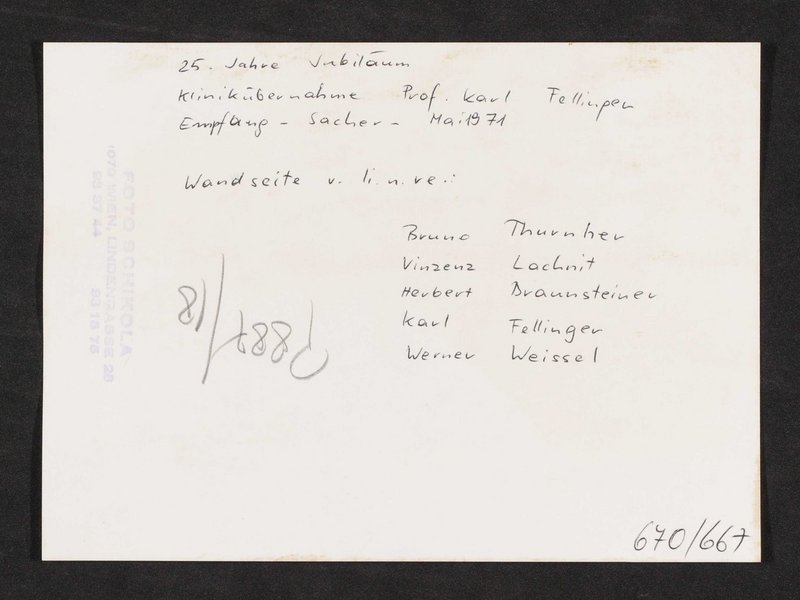 25. Jahre Jubiläum
Klinikübernahme Prof. Karl Fellinger
Empfang - Sacher - Mai 1971
Wandseite v. li. n. re.:
Bruno Thurnher
Vinzenz Lachnit
Herbert Braunsteiner
Karl Fellinger
Werner Weissel
FOTO SCHIKOLA
1070 WIEN, LINDENGASSE 26
670/667